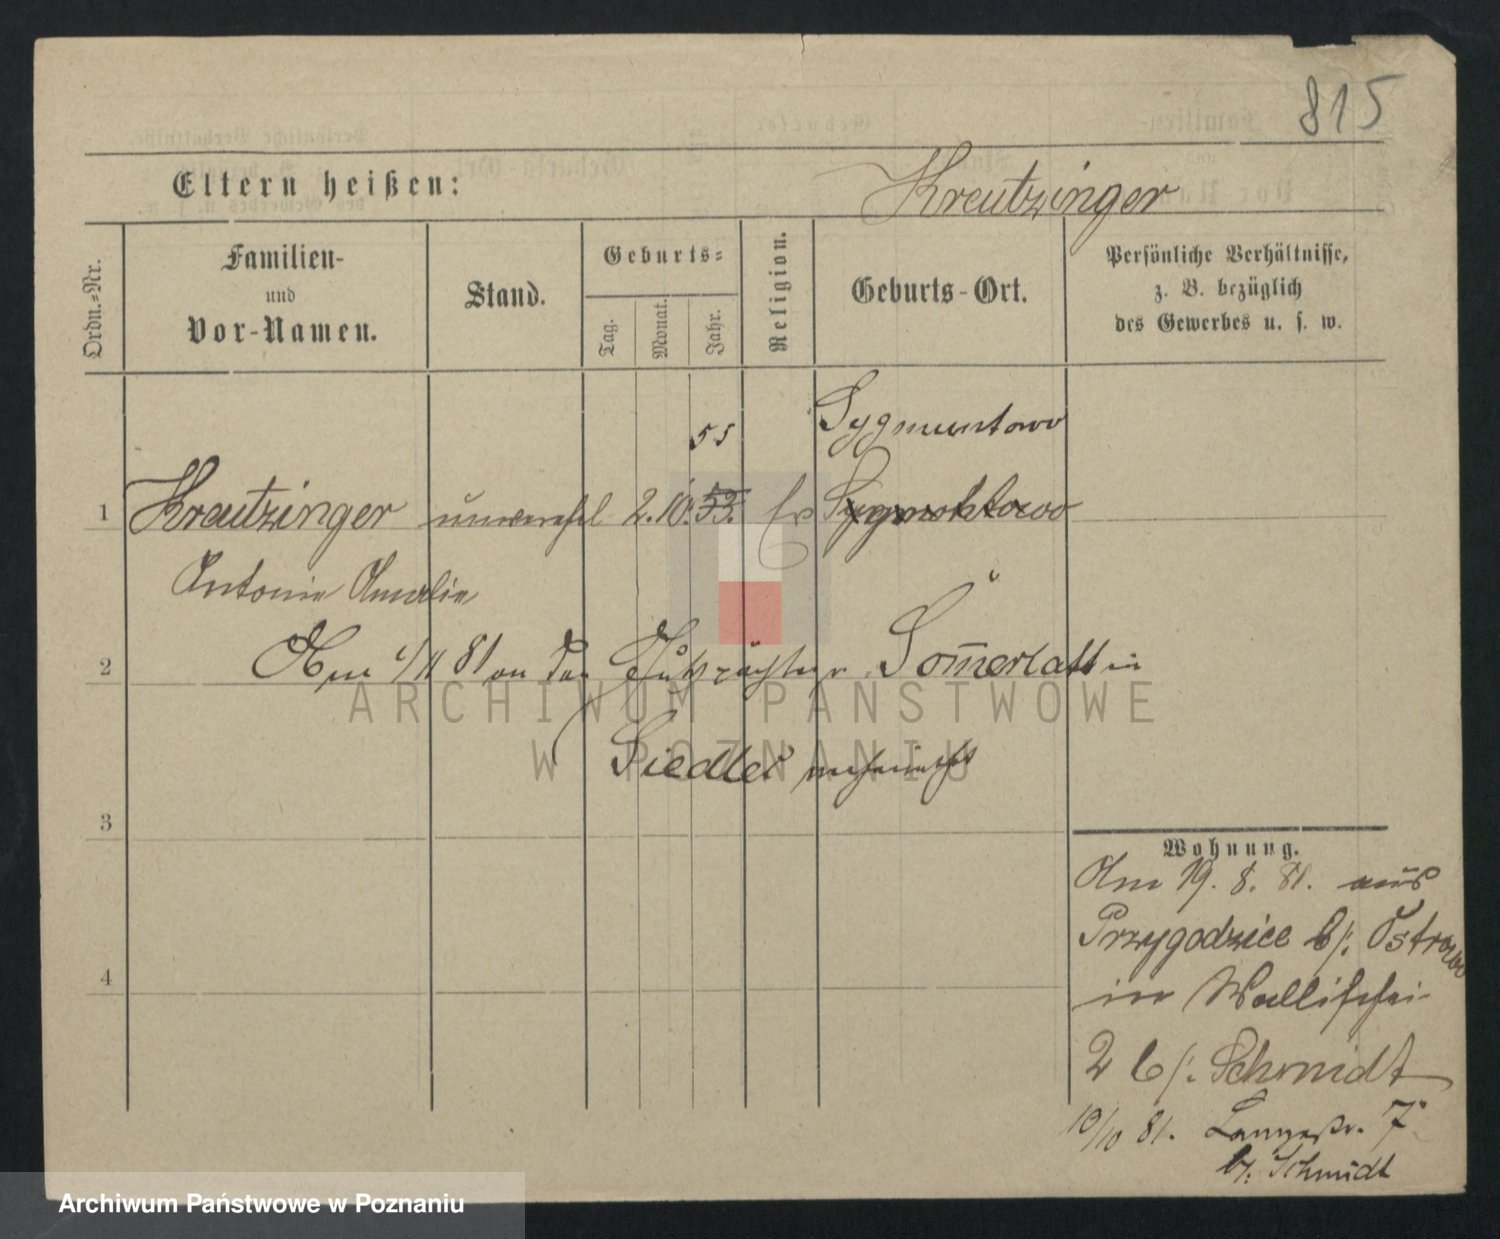 815
Eltern heißen:
Kreutzinger
Ordn.-Nr.
Familien-
und
Vor-Namen.
Stand.
Geburts-
Tag.
Monat.
Jahr.
Religion.
Geburts-Ort.
Persönliche Verhältnisse,
z. B. bezüglich
des Gewerbes u. s. w.
Sygmuntowo
55
1 Kreutzinger unverehel 2. 10. 53. Ev
Antonie Amalie
2 Am 1/11 81 an den Gutspächter Somerlatt in
Siedlec verheirathet
ARCHIWUM PAŃSTWOWE
W POZNANIU
3
4
Wohnung.
Am 19. 8. 81. aus
Przygodzice b/. Ostrowo
in Wallischei
2 b/. Schmidt
10/10 81. Langestr. 7
b/. Schmidt
Archiwum Państwowe w Poznaniu